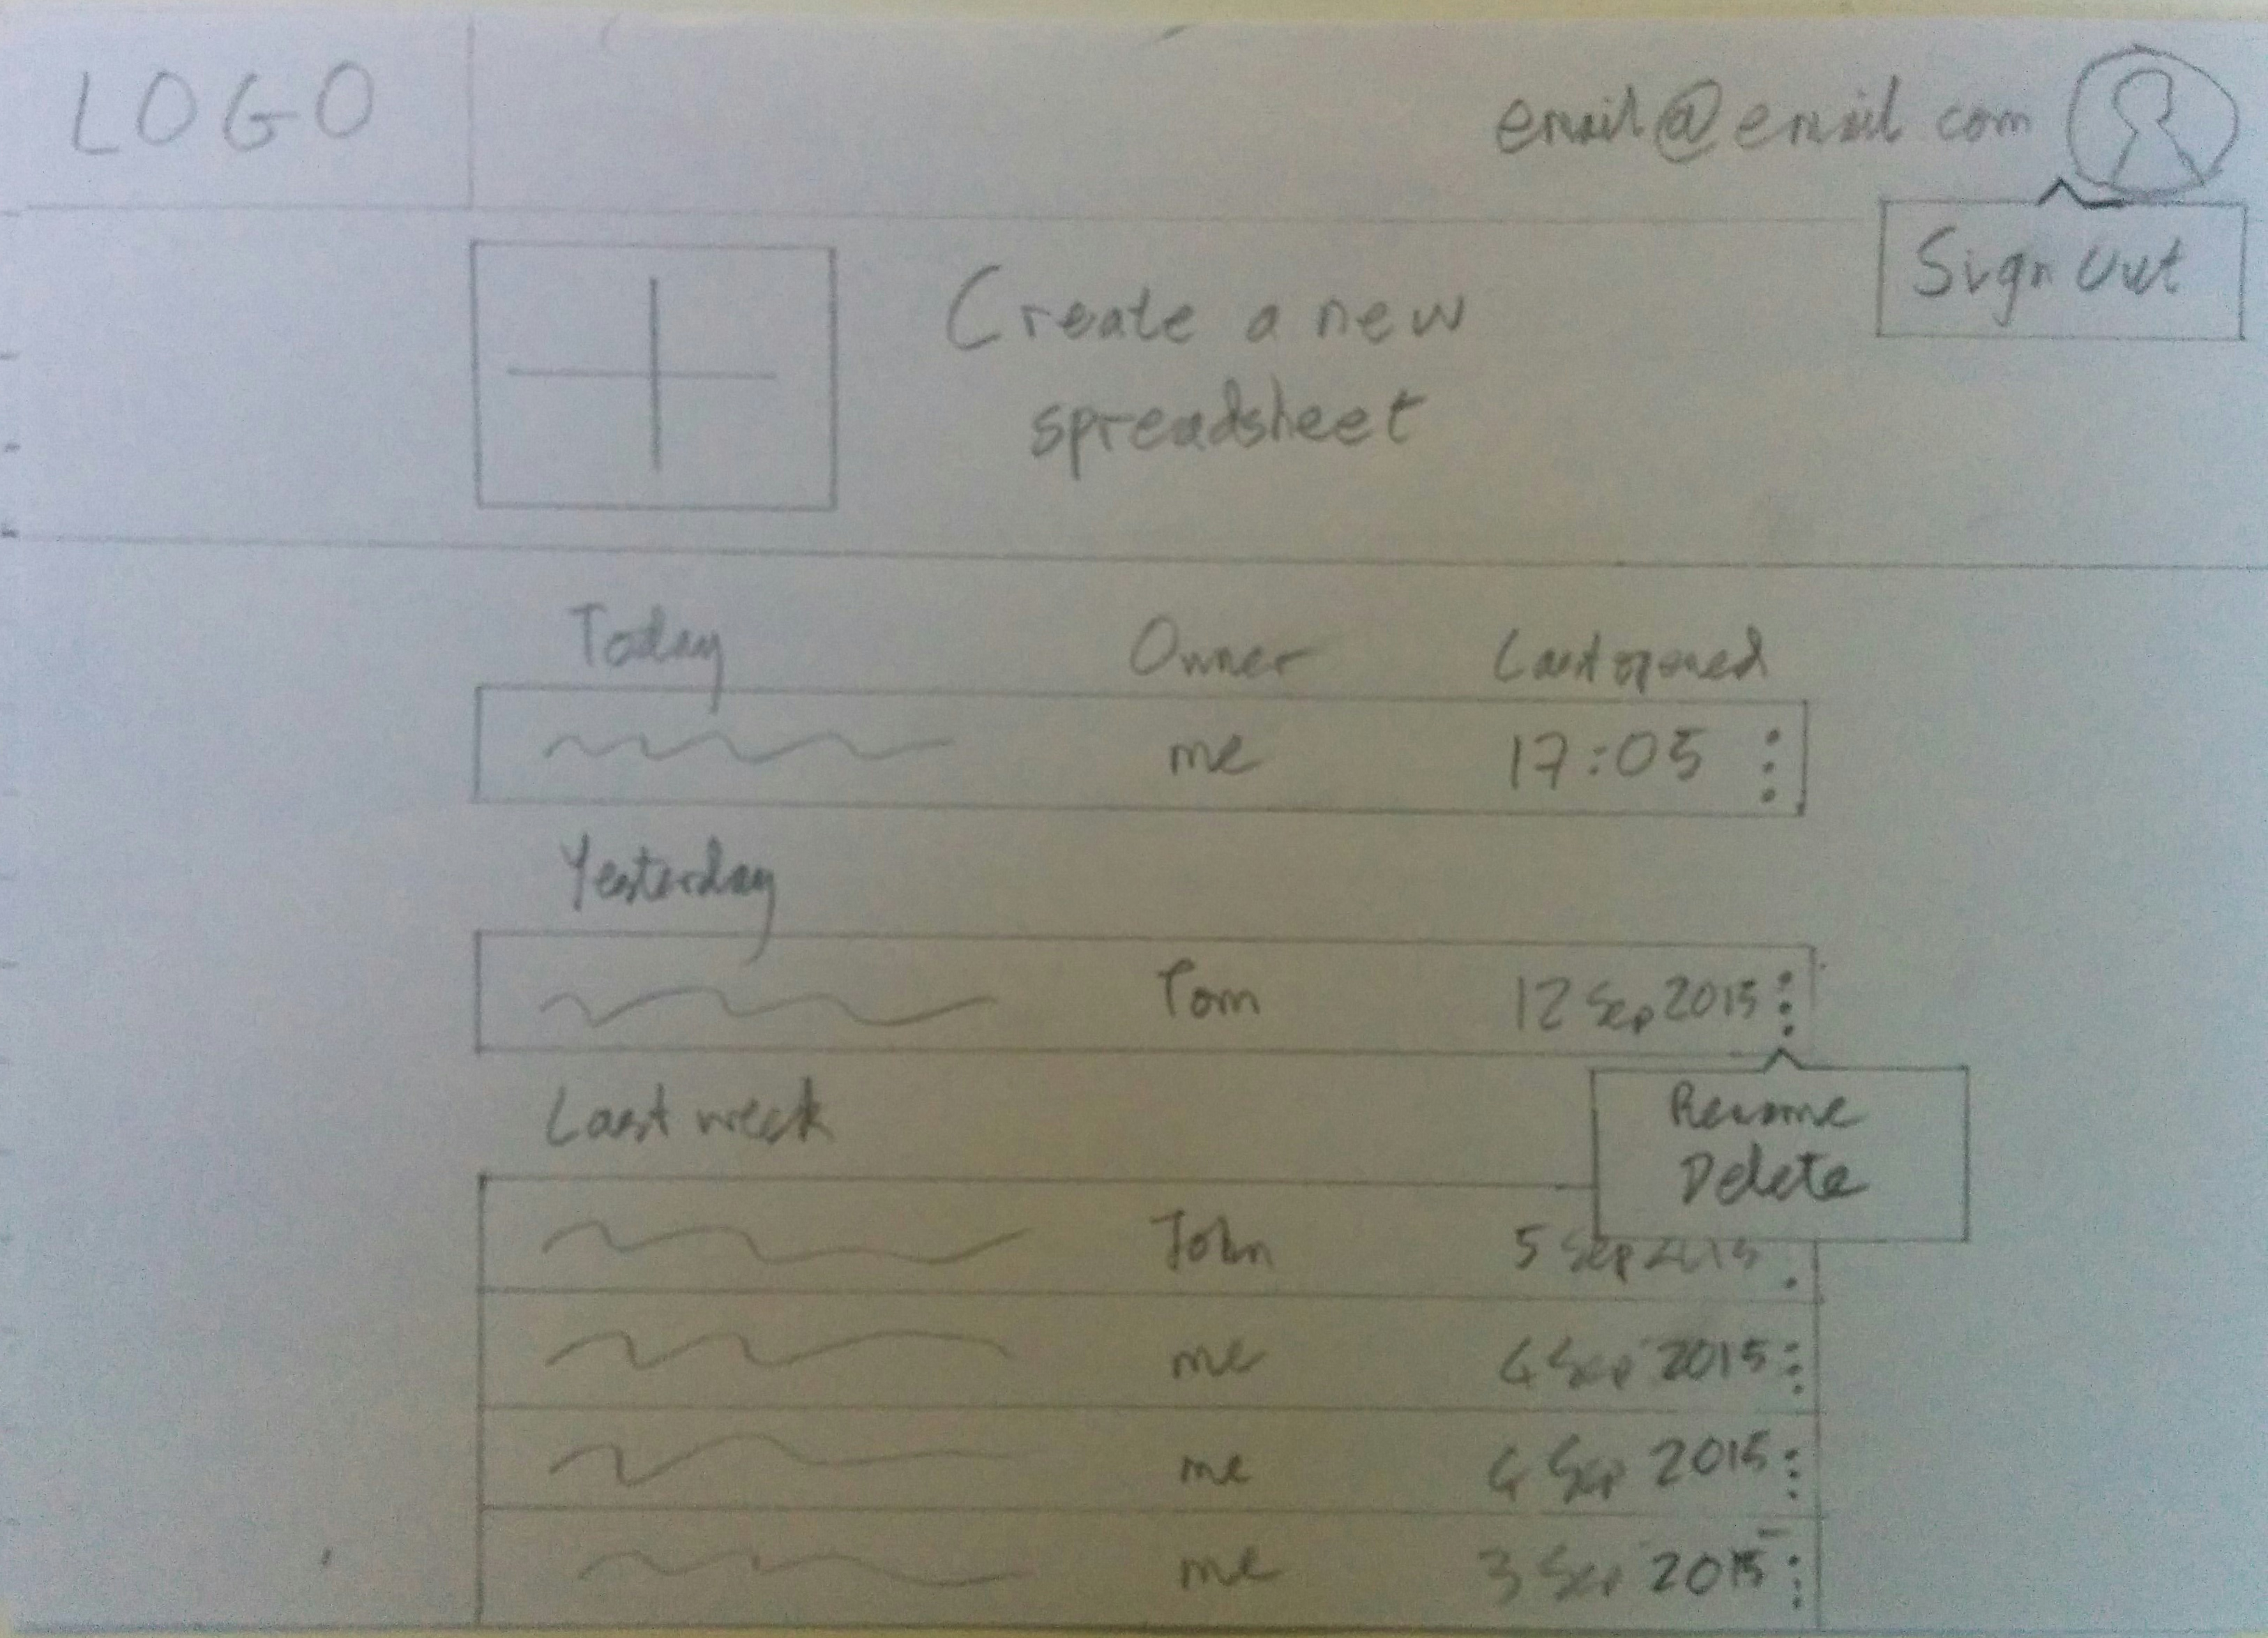 LOGO
email@email com
Sign Out
Create a new
spreadsheet
Today Owner Last opened
me 17:05
Yesterday
Tom 12 Sep 2015
Rename
Delete
Last week
John 5 Sep 2015
me 4 Sep 2015
me 4 Sep 2015
me 3 Sep 2015